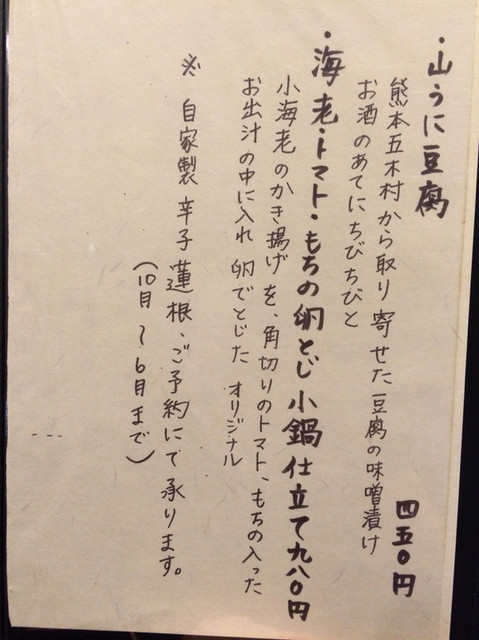 ・山うに豆腐
熊本五木村から取り寄せた豆腐の味噌漬け
お酒のあてにちびちびと
四五〇円
・海老・トマト・もちの卵とじ小鍋仕立て九八〇円
小海老のかき揚げを、角切りのトマト、もちの入った
お出汁の中に入れ卵でとじたオリジナル
※自家製辛子蓮根、ご予約にて承ります。
(10月～6月まで)